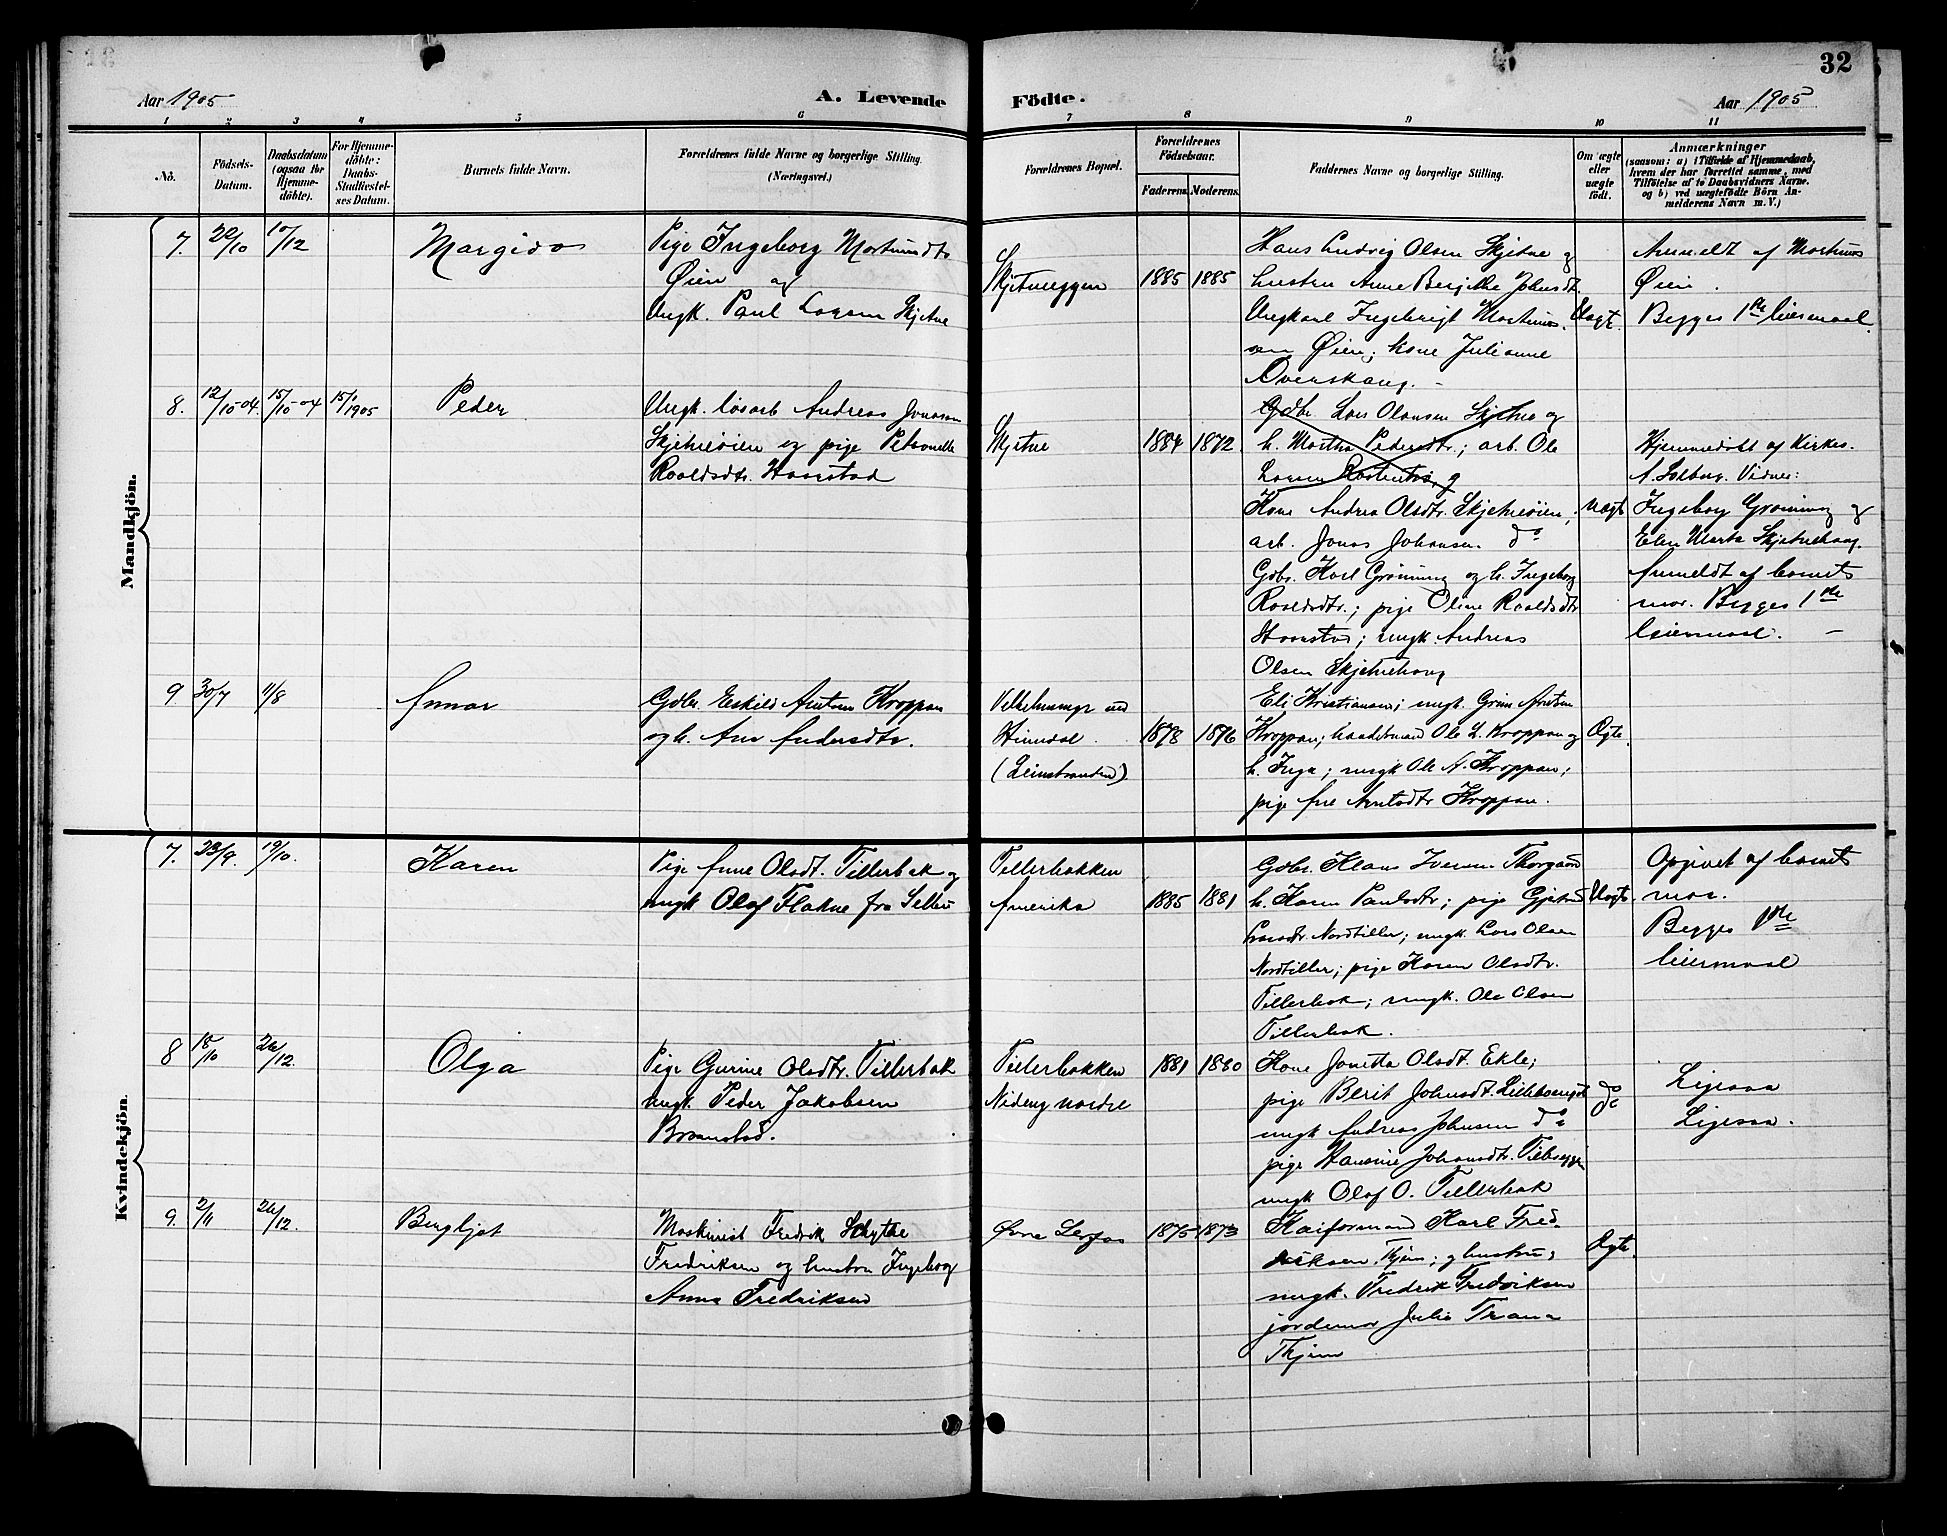 32
Aar 1905
A. Levende
Födte.
Aar 1905
1 2 3 4 5 6 7 8 9 10 11
No.
Födsels-
Datum.
Daabsdatum
(ogsaa for
Hjemme-
döbte).
For Hjemme-
döbte:
Daabs-
Stadfæstel-
ses Datum.
Barnets fulde Navn.
Forældrenes fulde Navne og borgerlige Stilling.
(Næringsvei.)
Forældrenes Bopæl.
Forældrenes
Födselsaar.
Faderens. Moderens.
Faddernes Navne og borgerlige Stilling.
Om ægte
eller
uægte
født.
Anmærkninger
(saasom: a) i Tilfælde af Hjemmedaab,
hvem der har forrettet samme, med
Tilføielse af to Daabsvidners Navne.
og b) ved uægtefödte Börn An-
melderens Navn m. V.)
Mandkjön.
7. 20/10 10/12
Margido
Pige Ingeborg Mortinusdtr
Øien og
Ungk. Paul Larsen Skjetne
Skjetneeggen
1885 1885
Hans Ludvig Olsen Skjetne og
hustru Anne Bergitte Johnsdt.
Ungkarl Ingebrigt Mortinus-
sen Øien; kone Julianne
Ovenskaug. –
Uægte
Anmeldt af Mortinus
Øien.
Begges 1ste leiermaal.
8. 12/10-04. 15/10-04 15/1 1905
Peder
Ungk. løsarb Andreas Jonassen
Skjetneøien og pige Petronelle
Roaldsdtr. Haarstad
Skjetne
1884 1872
Gdbr. Lars Olausen Skjetne og
h. Martha Pedersdtr.; arb. Ole
Larsen og
Kone Andrea Olsdtr. Skjetneøien;
arb. Jonas Johansen do
Gdbr. Karl Grønning og h. Ingeborg
Roaldsdtr.; pige Oline Roaldsdtr
Haarstad; ungk. Andreas
Olsen Skjetnehaug
Uægte
Hjemmedøbt af Kirkes.
A. Solberg. Vidner:
Ingeborg Grønning og
Elen Marta Skjetnehaug.
Anmeldt af barnets
mor. Begges 1ste
leiermaal. –
9 30/7 11/8
Annar
Gdbr. Eskild Arntsen Kroppan
og h. Ane Andersdtr.
Heimdal.
(Leinstranden)
1878 1876
Eli Kristiansen; ungk. Grim Arntsen
Kroppan; handelsmand Ole L. Kroppan og
h. Inga; ungk Ole A. Kroppan;
pige Ane Arntsdtr Kroppan.
Ægte.
Kvindekjön.
7. 23/9. 19/10.
Karen
Pige Anne Olsdt. Tillerbak og
ungk Olof Flakne fra Selbu
Tillerbakken
Amerika
1885 1881
Gdbr. Klaus Iversen Thorgaard
h. Karen Paulsdtr; pige Gjertrud
Larsdtr. Nordtiller; ungk. Lars Olsen
Nordtiller; pige Karen Olsdtr.
Tillerbak; ungk. Ole Olsen
Tillerbak.
Uægte.
Opgivet af barnets
mor.
Begges 1ste
leiermaal
8 18/10 26/12.
Olga
Pige Gurine Olsdtr. Tillerbak
ungk. Peder Jakobsen
Bromstad.
Tillerbakken
Nideng nordre
1881 1880
Kone Jonetta Olsdt. Ekle;
pige Berit Johnsdt.
ungk Andreas Johnsen do
pige Hansine Johansdtr.
ungk Olof O. Tillerbak
do
do
Ligesaa
Ligesaa.
9. 2/11 26/12.
Bergljot
Maskinist Fredrik Schytte
Fredriksen og hustru Ingeborg
Anna Fredriksen
Øvre Lerfos
1875 1873
Kaiformand Karl Fred-
riksen, Thjem; og hustru;
ungk. Fredrik Fredriksen
jordemor Julie Trana
Thjem
Ægte.